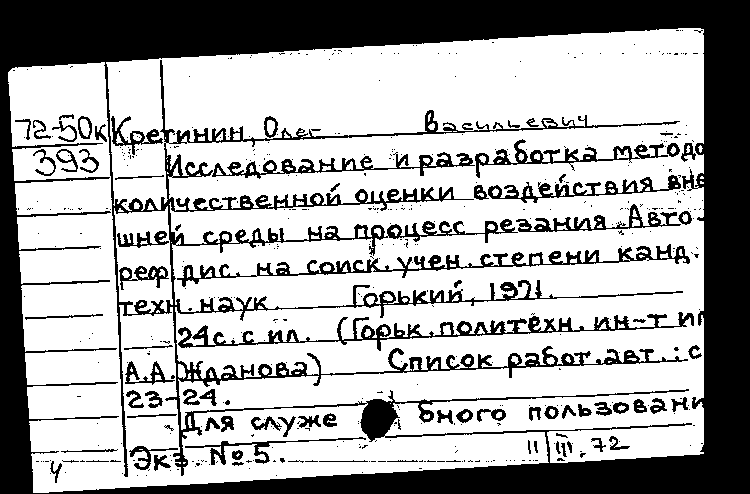 72-50к Кретинин, Олег Васильевич
393 Исследование и разработка методо
количественной оценки воздействия вне
шней среды на процесс резания. Авто-
реф. дис. на соиск. учен. степени канд.
техн. наук. Горький, 1971.
24 с. с ил. (Горьк. политехн. ин-т и
А.А. Жданова) Список работ. авт.: с
23-24.
Для служебного пользовани
Экз. № 5. 11/III.72